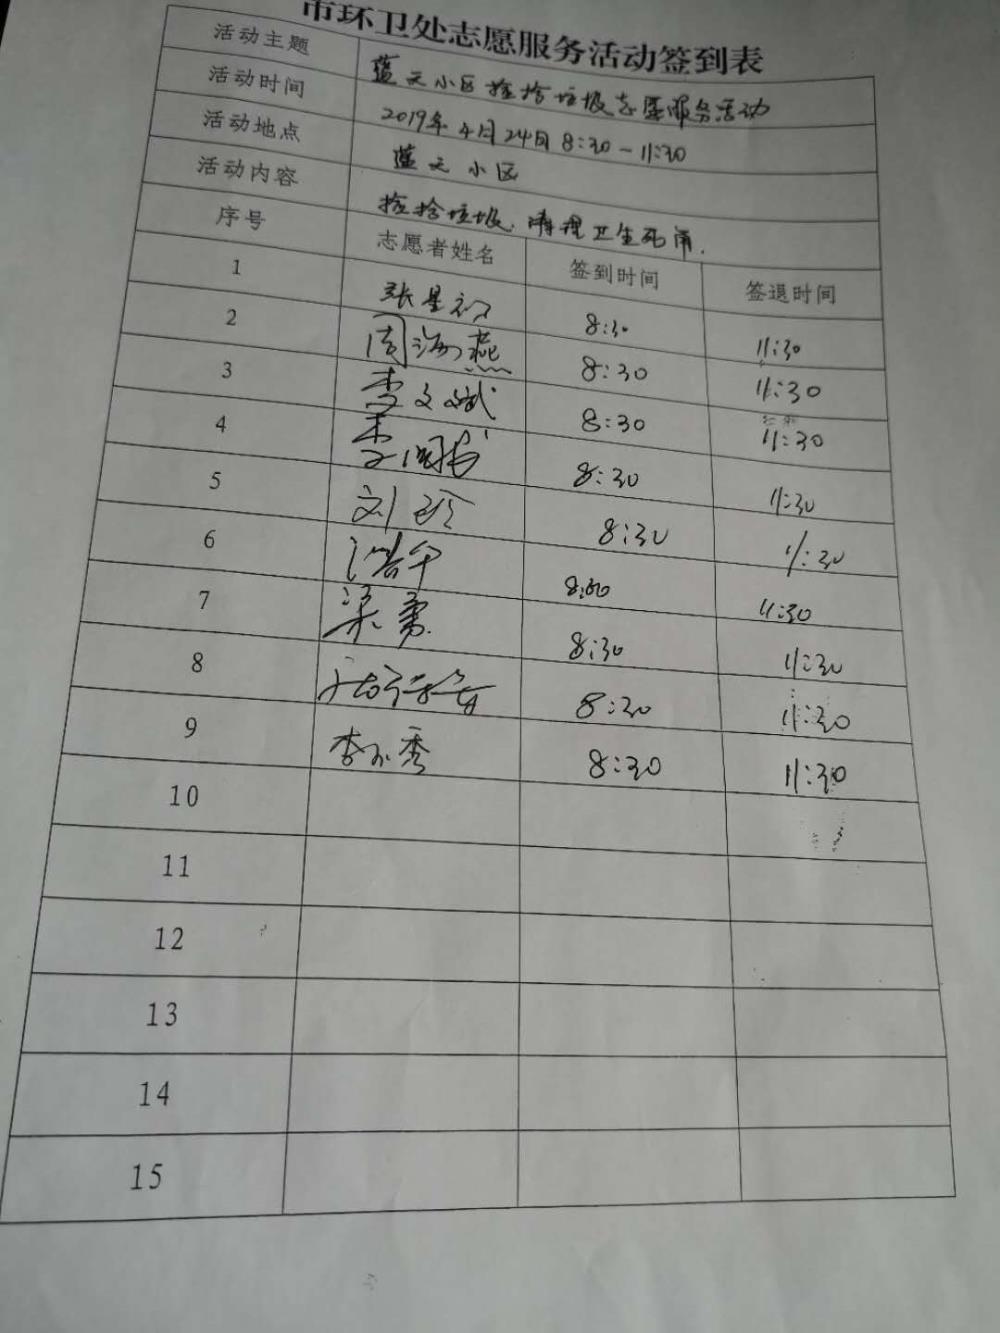 市环卫处志愿服务活动签到表
活动主题 蓝天小区捡拾垃圾志愿服务活动
活动时间 2019年4月24日 8:30-11:30
活动地点 蓝天小区
活动内容 捡拾垃圾、清理卫生死角.
序号 志愿者姓名 签到时间 签退时间
1 8:30 11:30
2 周海燕 8:30 11:30
3 李文斌 8:30 11:30
4 8:30 11:30
5 刘玲 8:30 11:30
6 8:30 11:30
7 梁勇 8:30 11:30
8 8:30 11:30
9 8:30 11:30
10
11
12
13
14
15